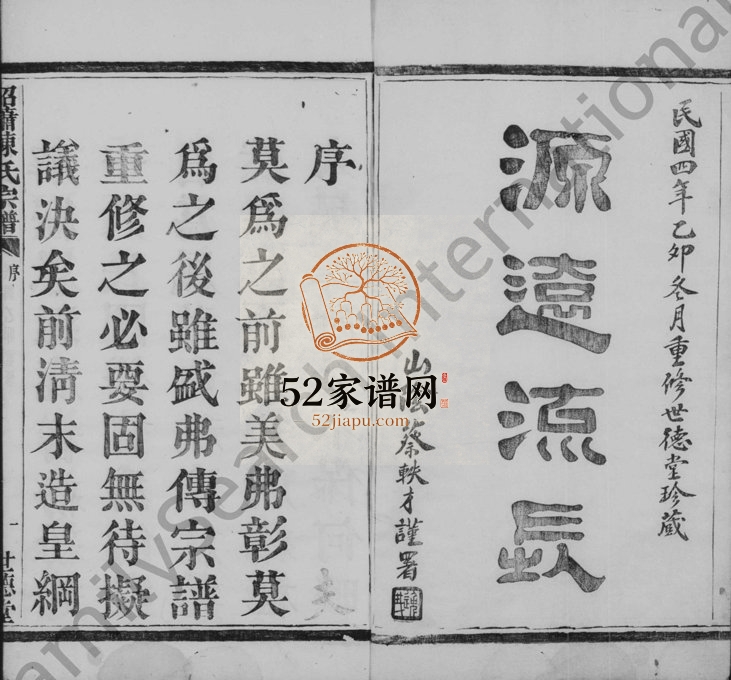 民國四年乙卯冬月重修世德堂珍藏
源遠流長
山陰蔡軼才謹署
序
莫爲之前雖美弗彰莫
爲之後雖盛弗傳宗譜
重修之必要固無待擬
議決矣前淸末造皇綱
陳氏宗譜
序
一
世德堂
52家谱网
52jiapu.com
FamilySearch International